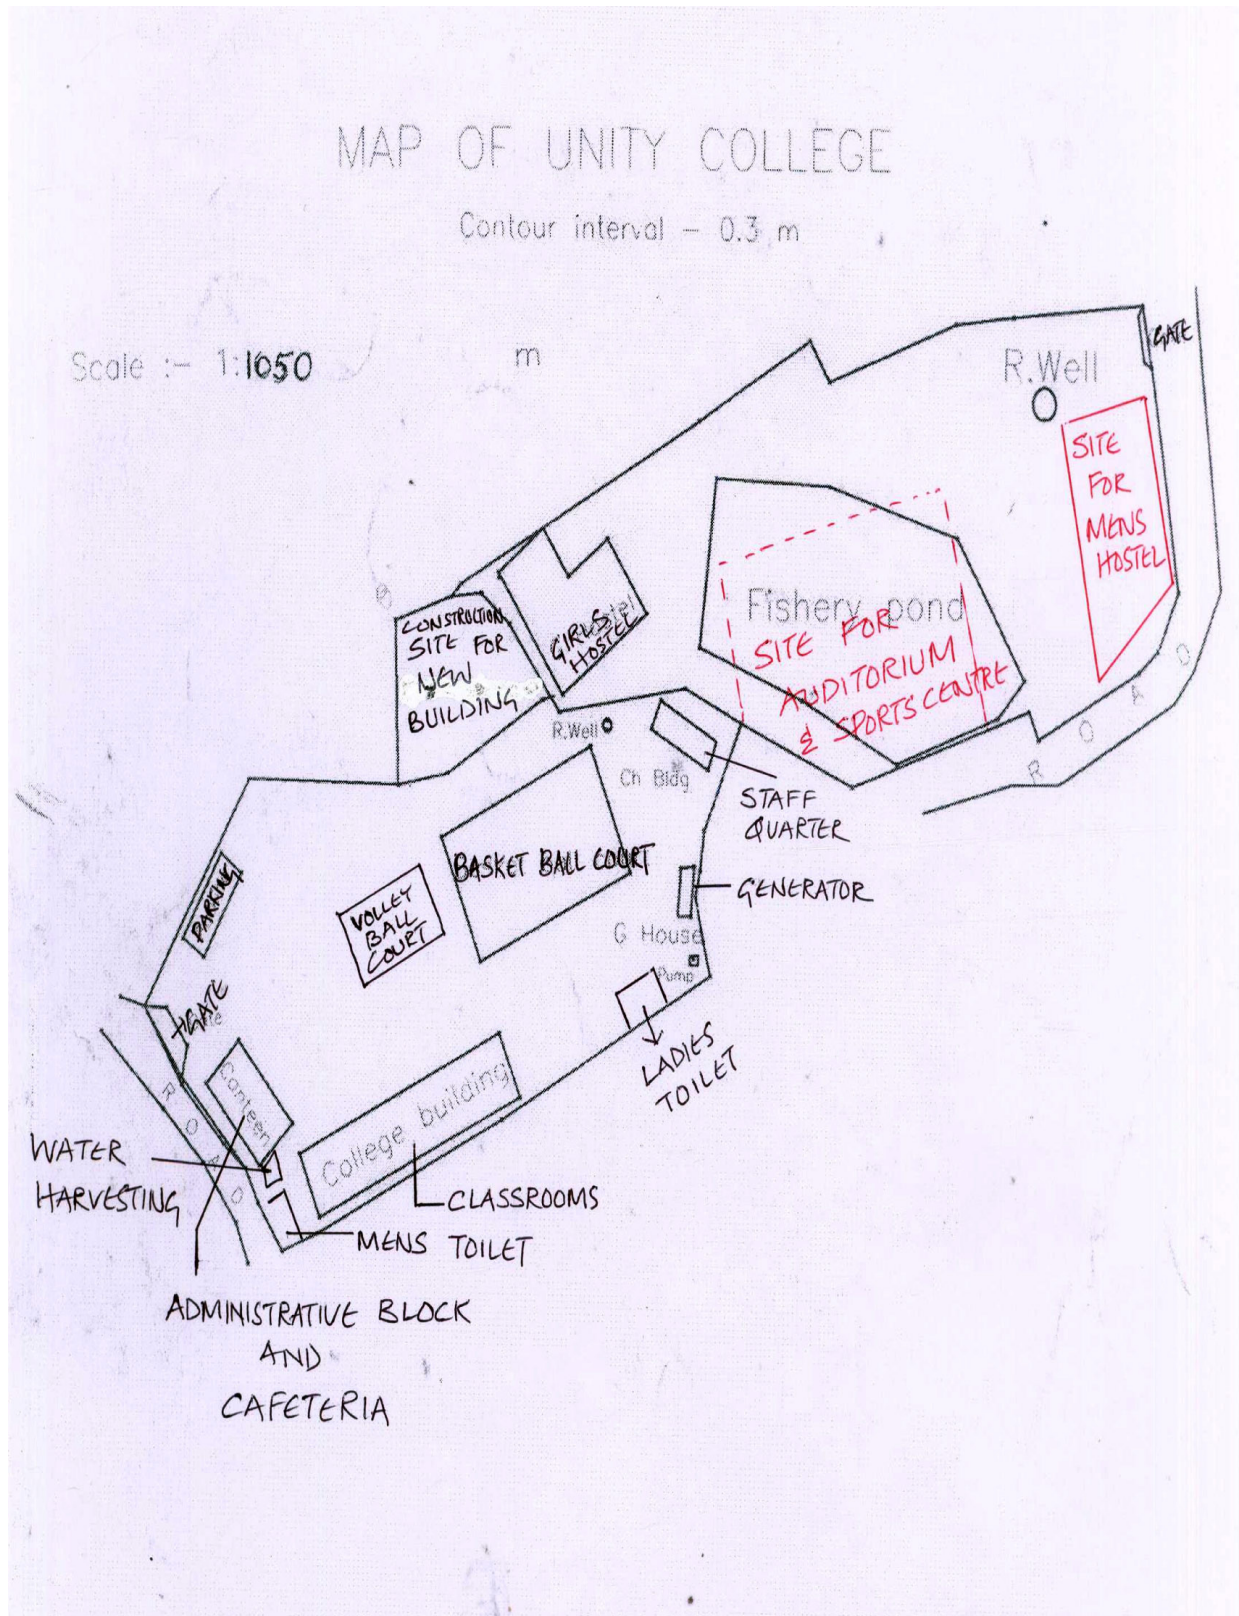 MAP OF UNITY COLLEGE
Contour interval – 0.3 m
Scale :– 1:1050
m
GATE
R.Well
SITE
FOR
MENS
HOSTEL
Fishery pond
SITE FOR
AUDITORIUM
& SPORTS CENTRE
CONSTRUCTION
SITE FOR
NEW
BUILDING
GIRLS
HOSTEL
R.Well
Ch Bldg
STAFF
QUARTER
ROAD
BASKET BALL COURT
VOLLEY
BALL
COURT
PARKING
GENERATOR
G House
Pump
GATE
LADIES
TOILET
Canteen
College building
ROAD
WATER
HARVESTING
CLASSROOMS
MENS TOILET
ADMINISTRATIVE BLOCK
AND
CAFETERIA